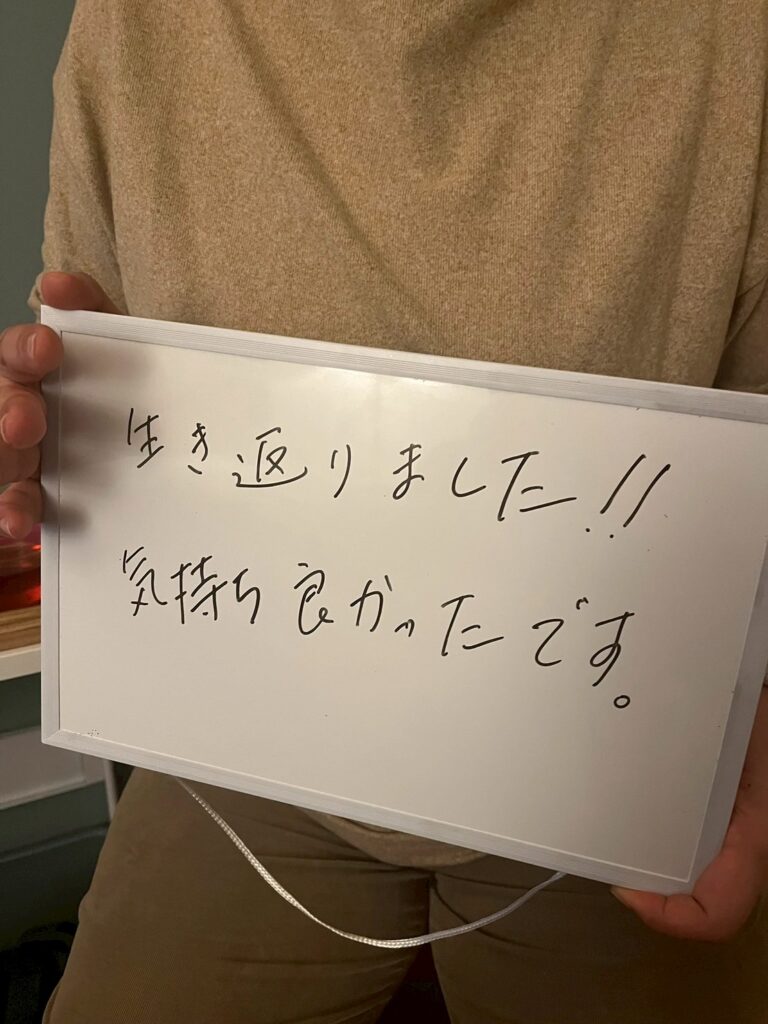 生き返りました!!
気持ち良かったです。